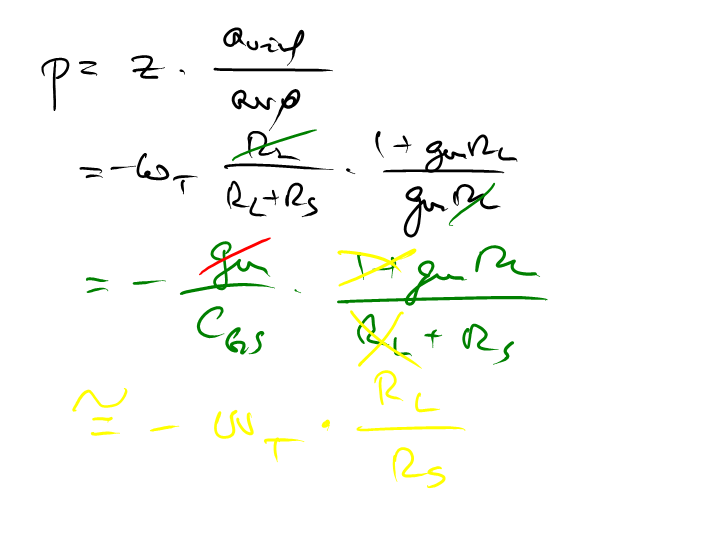 p = z · avif / avρ
= -ωT RL / (RL+RS) · (1 + gmRL) / (gmRL)
= - gm / CGS · (1+ gm RL) / (RL + RS)
≅ - ωT · RL / RS